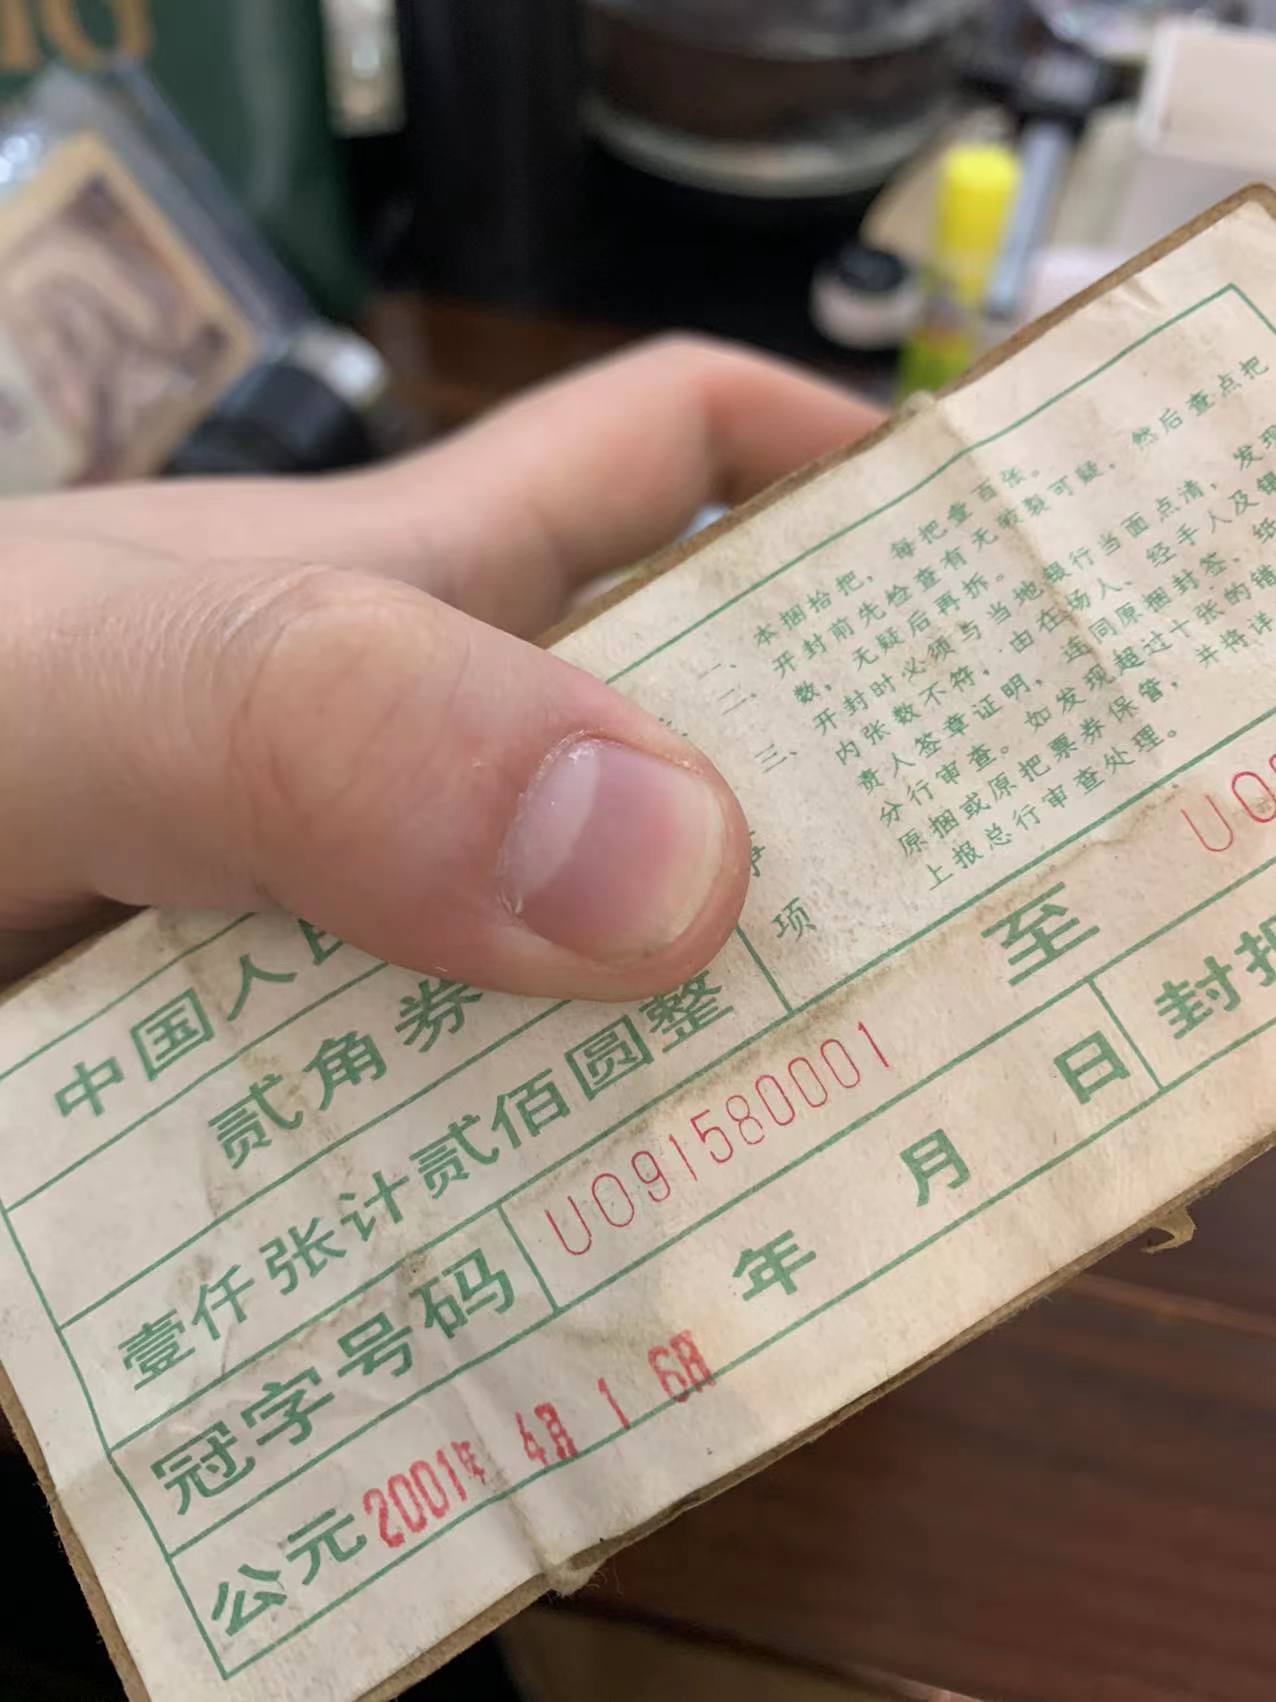 一、本捆拾把，每把壹百张。
二、开封前先检查有无破裂可疑，然后查点把
数，无疑后再拆。
三、开封时必须与当地银行当面点清，发现
内张数不符，由在场人、经手人及银
责人签章证明，连同原捆封签、纸
分行审查。如发现超过十张的错
原捆或原把票券保管，并将详
上报总行审查处理。
项
中国人民
贰角券
壹仟张计贰佰圆整
冠字号码 U091580001 至 U09
公元 年 月 日 封捆
2001年 4月 1 6日